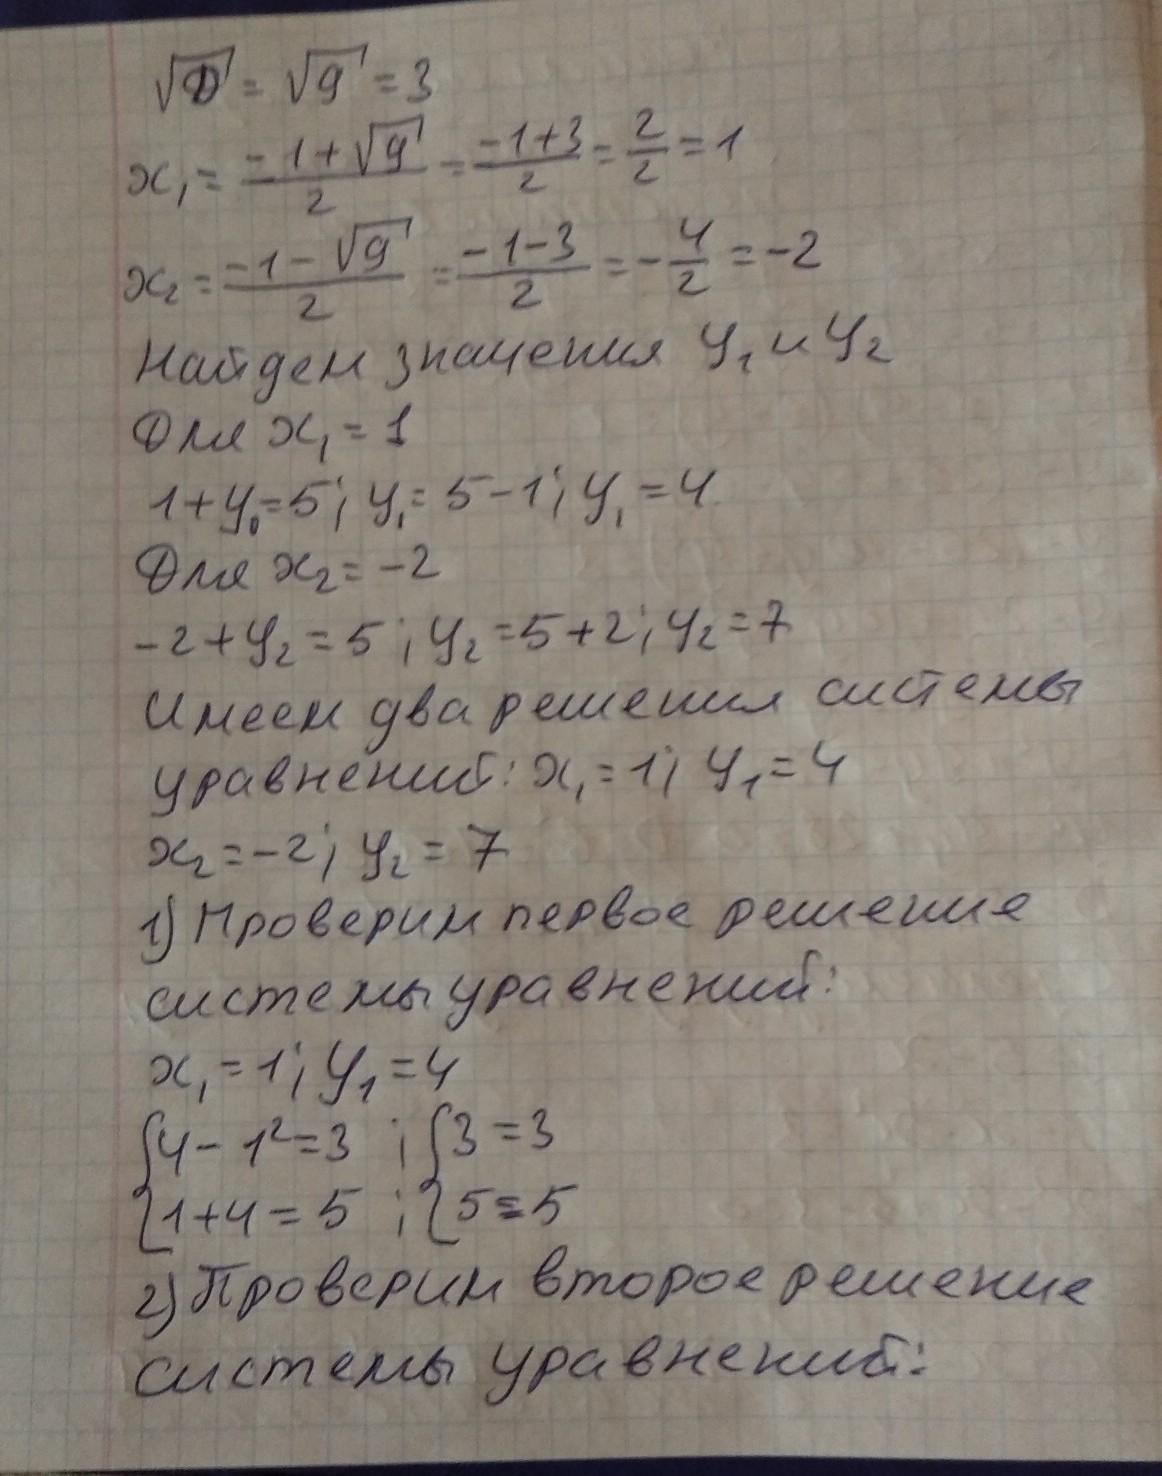 √D = √9 = 3
x₁ = (-1+√9)/2 = (-1+3)/2 = 2/2 = 1
x₂ = (-1-√9)/2 = (-1-3)/2 = -4/2 = -2
Найдем значения y₁ и y₂
Для x₁ = 1
1+y₁=5; y₁=5-1; y₁=4
Для x₂=-2
-2+y₂=5; y₂=5+2; y₂=7
Имеем два решения системы
уравнений: x₁=1; y₁=4
x₂=-2; y₂=7
1) Проверим первое решение
системы уравнений:
x₁=1; y₁=4
{4-1²=3 ; {3=3
{1+4=5 ; {5=5
2) Проверим второе решение
системы уравнений: